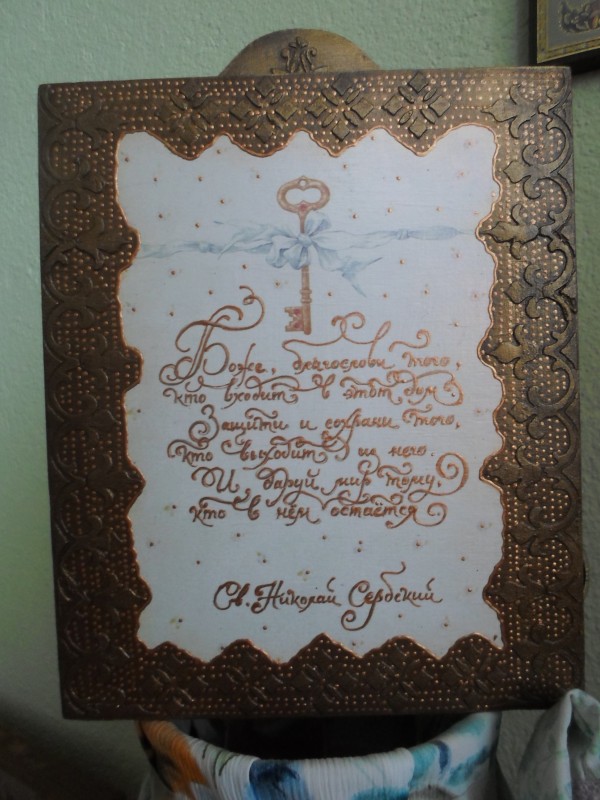 Боже, благослови того,
кто входит в этот дом.
Защити и сохрани того,
кто выходит из него.
И даруй мир тому,
кто в нём остаётся.
Св. Николай Сербский